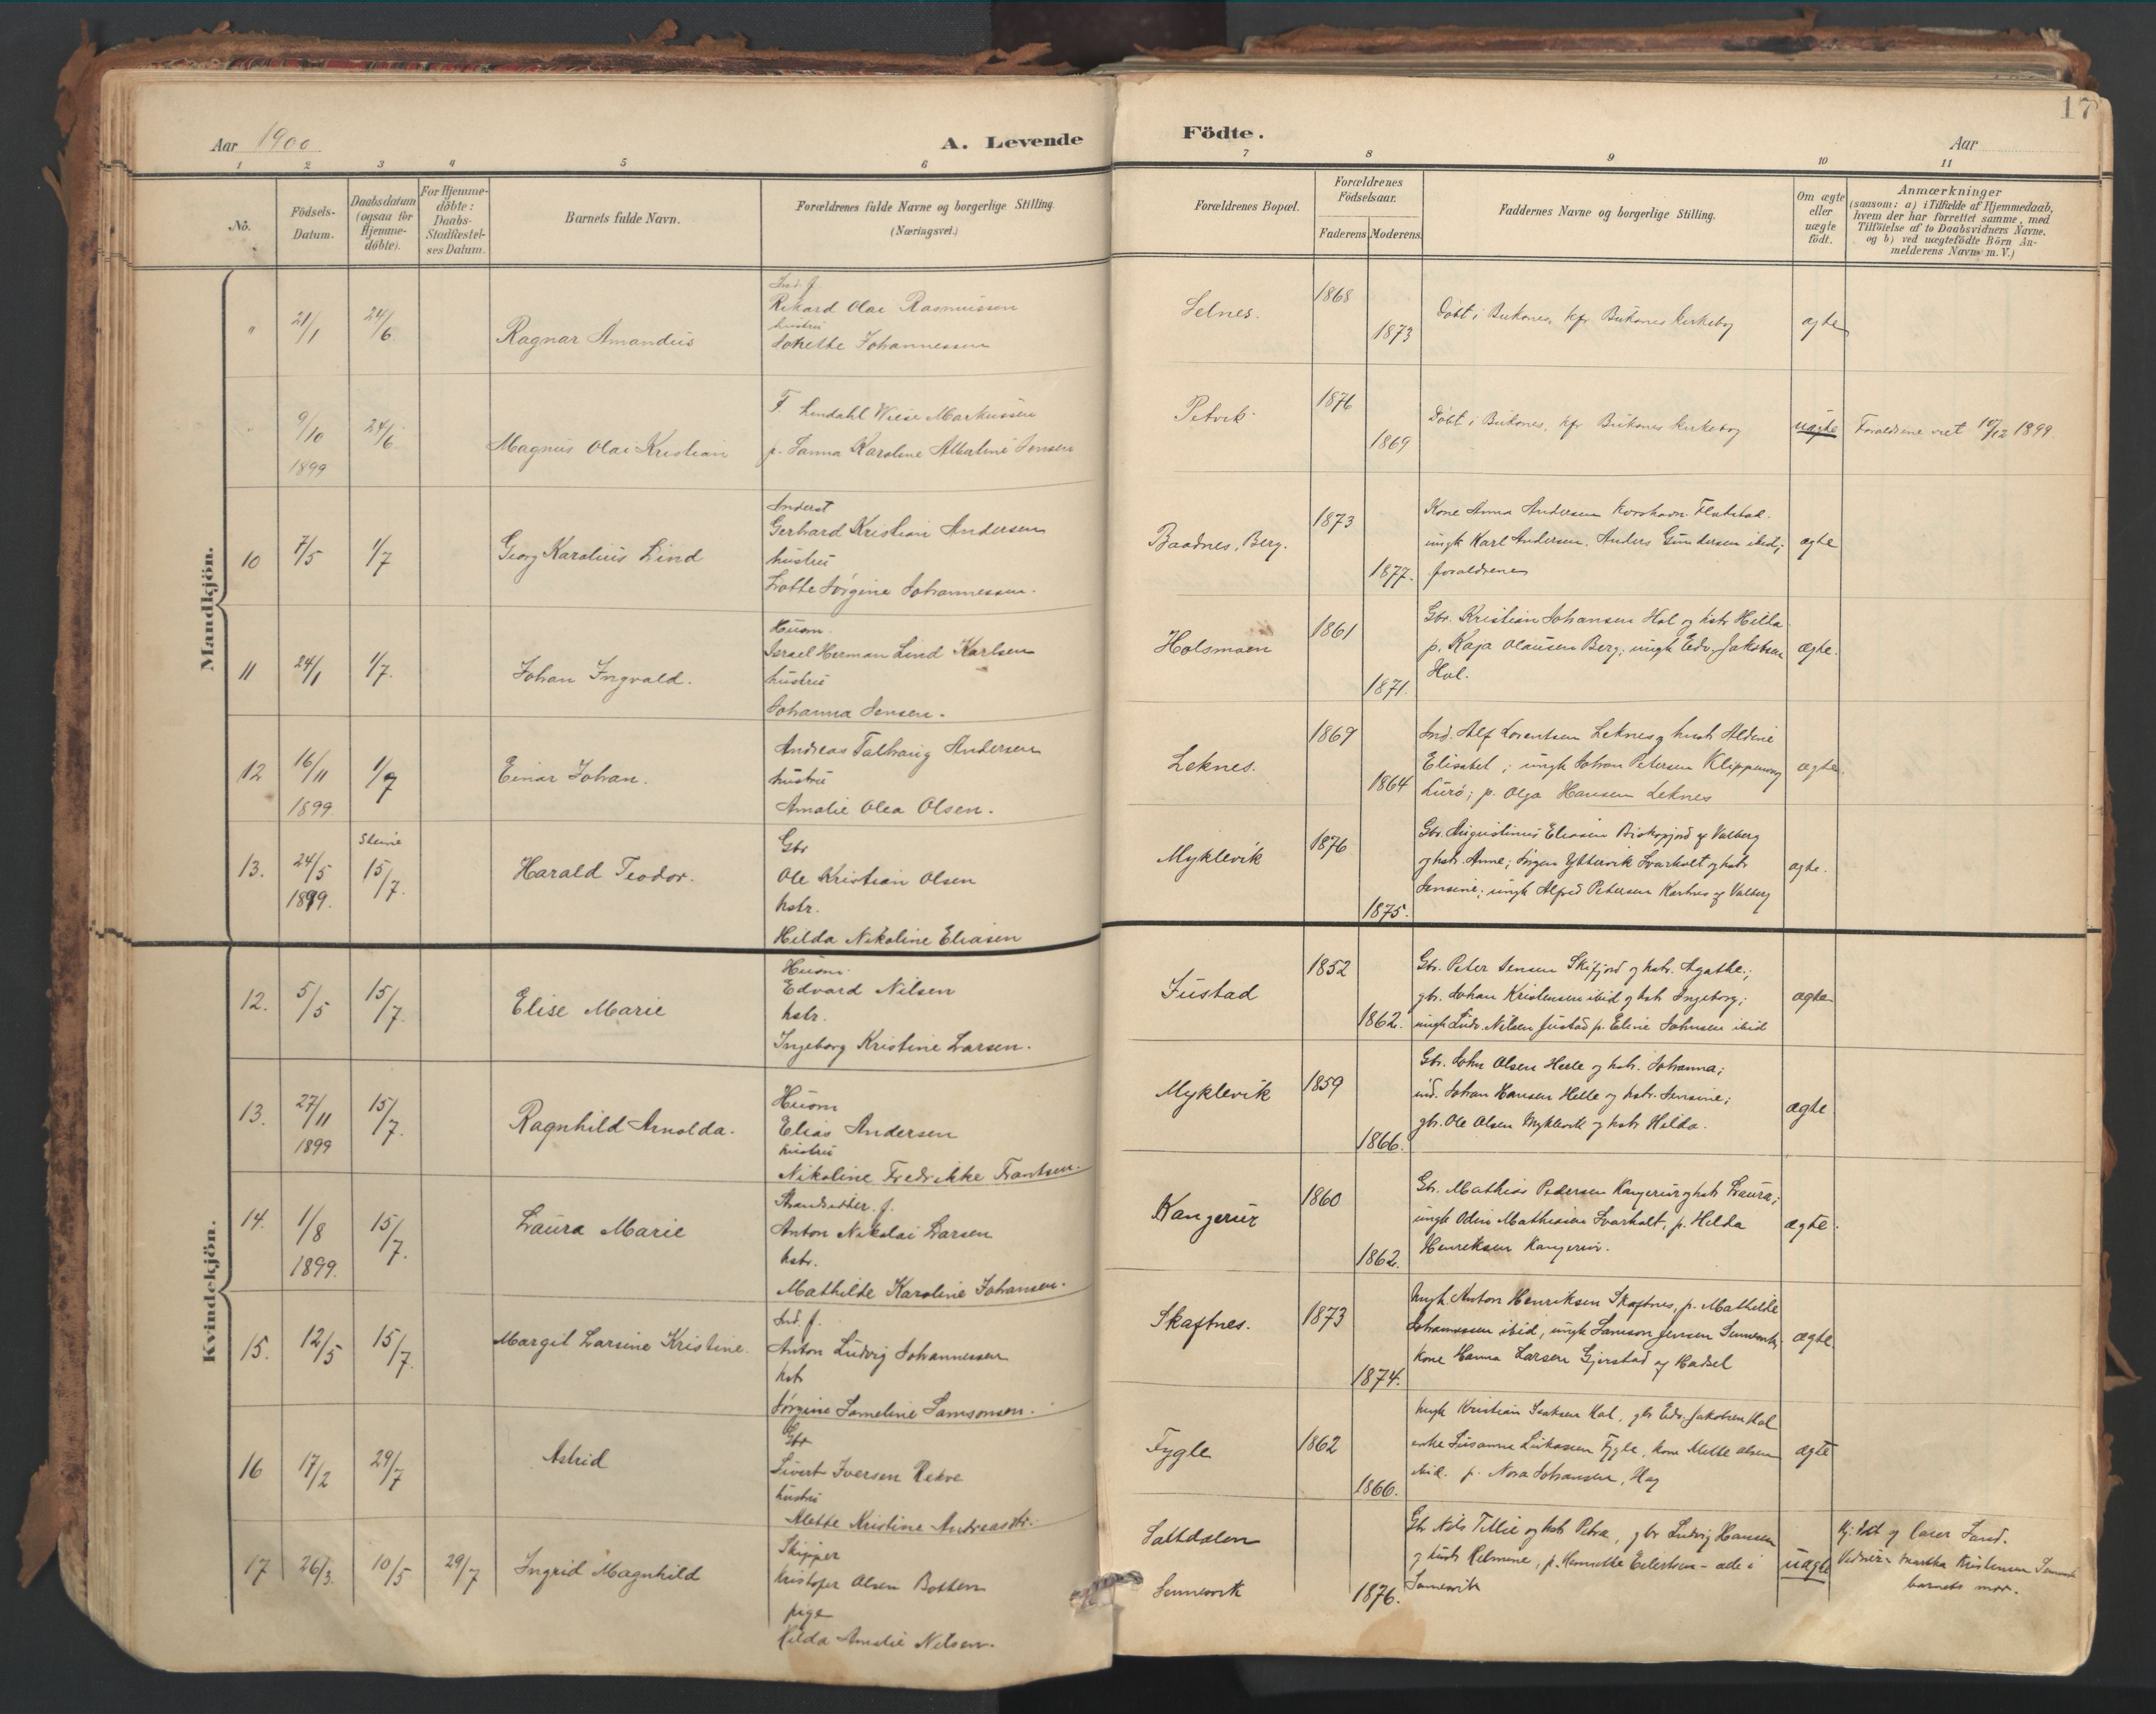 17
Aar 1900 A. Levende Födte. Aar
1 2 3 4 5 6 7 8 9 10 11
No.
Födsels-Datum.
Daabsdatum (ogsaa for Hjemmedöbte).
For Hjemmedöbte: Daabs-Stadfæstelses Datum.
Barnets fulde Navn.
Forældrenes fulde Navne og borgerlige Stilling. (Næringsvei.)
Forældrenes Bopæl.
Forældrenes Födselsaar.
Faderens. Moderens.
Faddernes Navne og borgerlige Stilling.
Om ægte eller uægte födt.
Anmærkninger
(saasom: a) i Tilfælde af Hjemmedaab,
hvem der har forrettet samme, med
Tilföielse af to Daabsvidners Navne,
og b) ved uægtefödte Börn An-
melderens Navn m. V.)
Mandkjön.
" 21/1 24/6 Ragnar Amandus
Ind. f.
Rikard Olai Rasmussen
hustru
Johannessen
Selnes. 1868 1873
Döbt i Buksnes, kfr Buksnes kirkebog
ægte
9/10 1899 24/6 Magnus Olai Kristian
F. Lindahl Wiese Markussen
p. Sanna Karoline Albertine Jensen
Petvik 1876 1869
Döbt i Buksnes, kfr Buksnes kirkebog
uægte
Forældrene viet 10/12 1899
10 7/5 1/7 Georg Karolius Lind
Gerhard Kristian Andersen
hustru
Lotte Jörgine Johannessen.
Baadnes, Berg. 1873 1877.
Kone Anna Andersen
ungk Karl Andersen, Anders Gundersen ibid;
forældrene
ægte
11 24/1 1/7. Johan Ingvald.
Husm.
Israel Herman Lind Karlsen
hustru
Johanna Jensen.
Holsmoen 1861 1871.
Gbr. Kristian Johansen Hol og hstr Hilda
p. Kaja Olausen Berg; ungk Edv. Jakobsen
Hol.
ægte.
12 16/11 1899 1/7 Einar Johan.
Andreas Falhaug Andersen
hustru
Amalie Olea Olsen.
Leknes. 1869 1864
Ind. Alf Lorentsen Leknes og hustr Aldine
Elisabet; ungk Johan Petersen
Lurö; p. Olga Hansen Leknes
ægte.
13. 24/5 1899. Steine 15/7. Harald Teodor.
Gbr
Ole Kristian Olsen
hstr.
Hilda Nikoline Eliasen
Myklevik 1876 1875.
Gbr. Augustinus Eliasen af Valberg
og hstr. Anne; Jörgen Yttervik Svarholt og hstr
Jensine; ungk Alfred Petersen af Valberg
ægte.
Kvindekjön.
12. 5/5 15/7. Elise Marie
Husm.
Edvard Nilsen
hstr.
Ingeborg Kristine Larsen.
Justad 1852 1862.
Gbr. Peter Jensen Skifjord og hstr. Agathe;
gbr. Johan Kristensen ibid og hstr Ingeborg;
ungk Ludv. Nilsen Justad p. Eline Johnsen ibid
ægte
13. 27/11 1899 15/7. Ragnhild Arnolda.
Husm
Elias Andersen
hustru
Nikoline Fredrikke Frantsen.
Myklevik 1859 1866.
Gbr. John Olsen Helle og hstr. Johanna;
ind. Johan Hansen Helle og hstr. Jensine;
gbr. Ole Olsen Myklevik og hstr Hilda.
ægte
14. 1/8 1899. 15/7. Laura Marie
Strandsidder. f.
Anton Nikolai Larsen
hstr.
Mathilde Karoline Johansen.
Kangerur 1860 1862.
Gbr. Mathias Pedersen Kangerur og hstr Laura;
ungk Odin Mathiasen Svarholt, p. Hilda
Henriksen Kangerur.
ægte.
15. 12/5 15/7. Margit Larsine Kristine.
Ind. f.
Anton Ludvig Johannessen
hstr
Jörgine Lameline Samsonsen.
Skaftnes. 1873 1874.
Ungk. Anton Henriksen Skaftnes, p. Mathilde
Johannessen ibid, ungk Samson Jensen Sennesvik,
kone Hanna Larsen Gjerstad af Hadsel
ægte
16 17/2 29/7 Astrid
Gbr
Sivert Iversen Rekve
hustru
Mette Kristine Andreasdtr.
Fygle 1862 1866.
Ungk Kristian Isaksen Hol, gbr Edv. Jakobsen Hol
enke Susanne Lukassen Fygle, kone Mette Olsen
ibid. p. Nora Johansen, Hag
ægte
17 26/3. 10/5 29/7 Ingrid Magnhild
Skipper
Kristofer Olsen Botten
pige
Hilda Amalie Nilsen.
Saltdalen
Sennesvik 1876.
Gbr Nils Tillie og hstr Petra, gbr Ludvig Hansen
og hustr Helmine, p. Henriette Eilertsen - alle i
Sennesvik
uægte
Hj. döbt af Sand.
Vidner: Martha Kristensen Sennesvik
barnets mor.